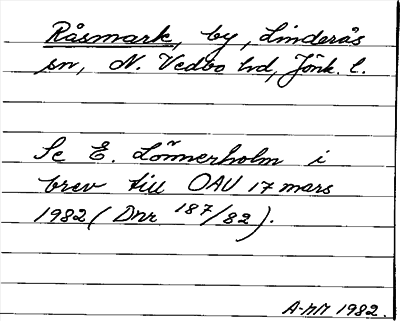 Råsmark, by, Linderås
sn, N. Vedbo hd, Jönk. l.
Se E. Lönnerholm i
brev till OAU 17 mars
1982 (Dnr 187/82).
A-MM 1982.